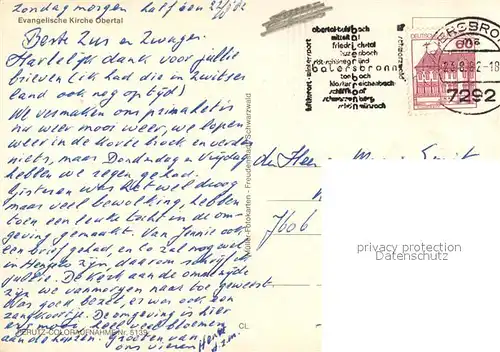 Zondag morgen half een 22/8/82
Evangelische Kirche Obertal
Beste Zus en Zwager
Hartelijk dank voor jullie
brieven (ik had die in Zwitserland
ook nog optijd)
We vermaken ons prima het is
nu weer mooi weer, we lopen
weer in de korte broek en verder
niets, maar Donderdag en Vrijdag
hebben we regen gehad.
Gisteren was het wel droog
maar veel bewolking, hebben
toen een leuke tocht in de omgeving
gemaakt. Van Jannie ook
een brief gehad, en zo zal nog wel
in Hengelo zijn, daarom schrijf ik
jullie. De kerk aan de ommezijde
zijn we vanmorgen naar toe geweest.
Was goed bezet, er was ook een
zangkoortje. De omgeving is hier
erg mooi, heel veel bloemen
aan de huizen. Groeten van
ons vieren Henk
SCHUTZ-COLORAUFNAHME Nr. 5139
CL
Müller-Fotokarten - Freudenstadt/Schwarzwald
obertal-buhlbach
mitteltal
friedrichstal
huzenbach
röt-schönegründ
baiersbronn
tonbach
klosterreichenbach
schliffkopf
schwarzenberg
luftkurort - wintersport
schwarzwald
DEUTSCHE
60
23.8.82-18
7292
den Heer
7606
privacy protection
Datenschutz